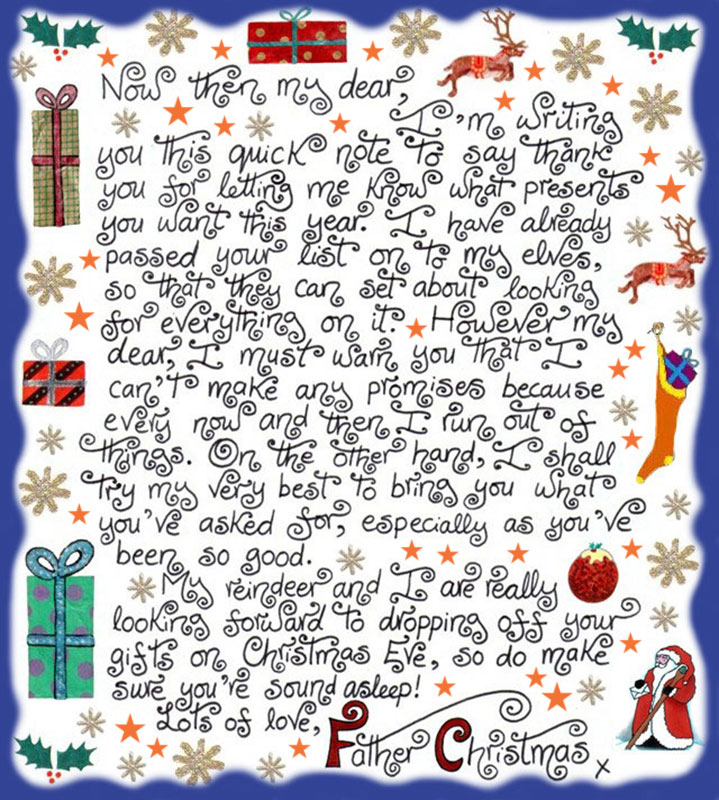 Now then my dear,
I'm writing
you this quick note to say thank
you for letting me know what presents
you want this year. I have already
passed your list on to my elves,
so that they can set about looking
for everything on it. However my
dear, I must warn you that I
can't make any promises because
every now and then I run out of
things. On the other hand, I shall
try my very best to bring you what
you've asked for, especially as you've
been so good.
My reindeer and I are really
looking forward to dropping off your
gifts on Christmas Eve, so do make
sure you're sound asleep!
Lots of love,
Father Christmas x